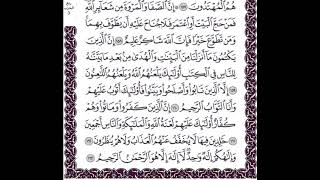 هُمُ ٱلْمُهْتَدُونَ ۝ إِنَّ ٱلصَّفَا وَٱلْمَرْوَةَ مِن شَعَآئِرِ ٱللَّهِ
فَمَنْ حَجَّ ٱلْبَيْتَ أَوِ ٱعْتَمَرَ فَلَا جُنَاحَ عَلَيْهِ أَن يَطَّوَّفَ بِهِمَا
وَمَن تَطَوَّعَ خَيْرًا فَإِنَّ ٱللَّهَ شَاكِرٌ عَلِيمٌ ۝ إِنَّ ٱلَّذِينَ
يَكْتُمُونَ مَآ أَنزَلْنَا مِنَ ٱلْبَيِّنَٰتِ وَٱلْهُدَىٰ مِنۢ بَعْدِ مَا بَيَّنَّٰهُ
لِلنَّاسِ فِى ٱلْكِتَٰبِ أُو۟لَٰٓئِكَ يَلْعَنُهُمُ ٱللَّهُ وَيَلْعَنُهُمُ ٱللَّٰعِنُونَ
۝ إِلَّا ٱلَّذِينَ تَابُوا۟ وَأَصْلَحُوا۟ وَبَيَّنُوا۟ فَأُو۟لَٰٓئِكَ أَتُوبُ عَلَيْهِمْ
وَأَنَا ٱلتَّوَّابُ ٱلرَّحِيمُ ۝ إِنَّ ٱلَّذِينَ كَفَرُوا۟ وَمَاتُوا۟ وَهُمْ
كُفَّارٌ أُو۟لَٰٓئِكَ عَلَيْهِمْ لَعْنَةُ ٱللَّهِ وَٱلْمَلَٰٓئِكَةِ وَٱلنَّاسِ أَجْمَعِينَ
۝ خَٰلِدِينَ فِيهَا لَا يُخَفَّفُ عَنْهُمُ ٱلْعَذَابُ وَلَا هُمْ يُنظَرُونَ
۝ وَإِلَٰهُكُمْ إِلَٰهٌ وَٰحِدٌ لَّآ إِلَٰهَ إِلَّا هُوَ ٱلرَّحْمَٰنُ ٱلرَّحِيمُ ۝